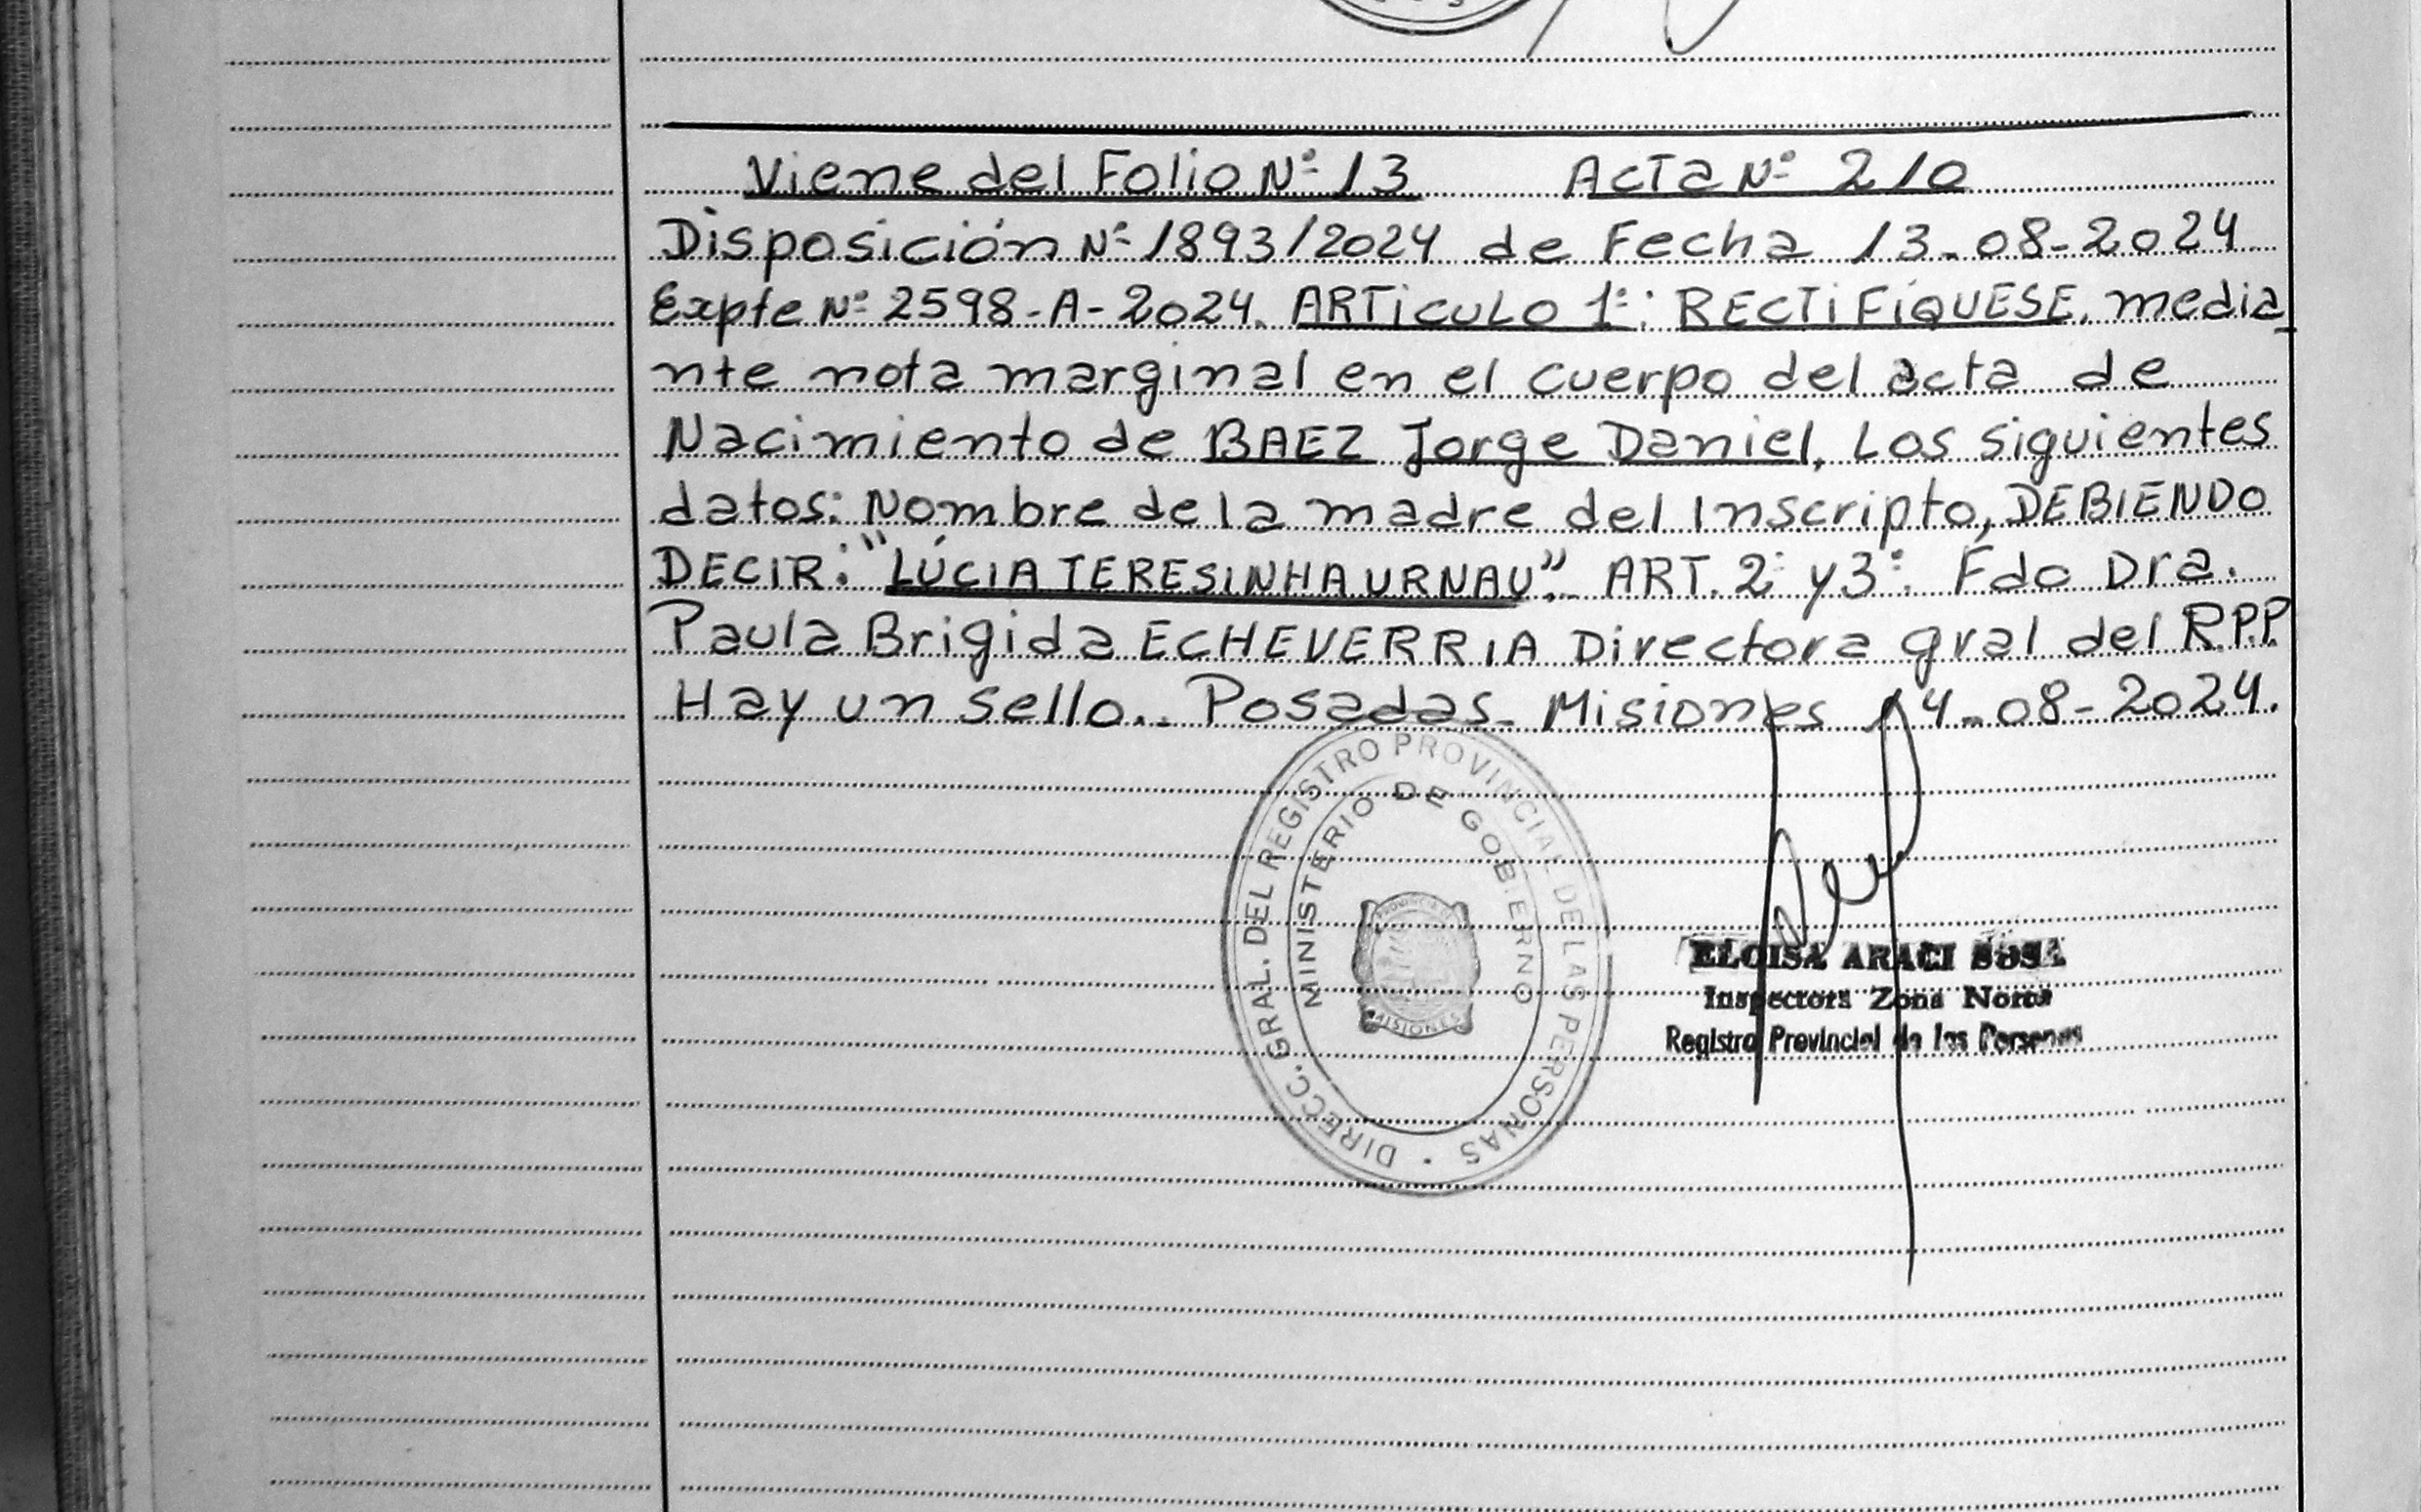 Viene del Folio Nº 13 Acta Nº 210
Disposición Nº 1893/2024 de Fecha 13-08-2024
Expte Nº 2598-A-2024. ARTiCULO 1º: RECTiFíQUESE. media
nte nota marginal en el cuerpo del acta de
Nacimiento de BAEZ Jorge Daniel, Los siguientes
datos: Nombre de la madre del Inscripto, DEBIENDO
DECIR: "LÚCIA TERESINHA URNAU". ART. 2º y 3º. Fdo Dra.
Paula Brigida ECHEVERRIA Directora gral del R.P.P.
Hay un sello.. Posadas. Misiones 14-08-2024.
DIRECC. GRAL. DEL REGISTRO PROVINCIAL DE LAS PERSONAS
MINISTERIO DE GOBIERNO
PROVINCIA DE
MISIONES
ELOISA ARACI SOSA
Inspectora Zona Norte
Registro Provincial de las Personas